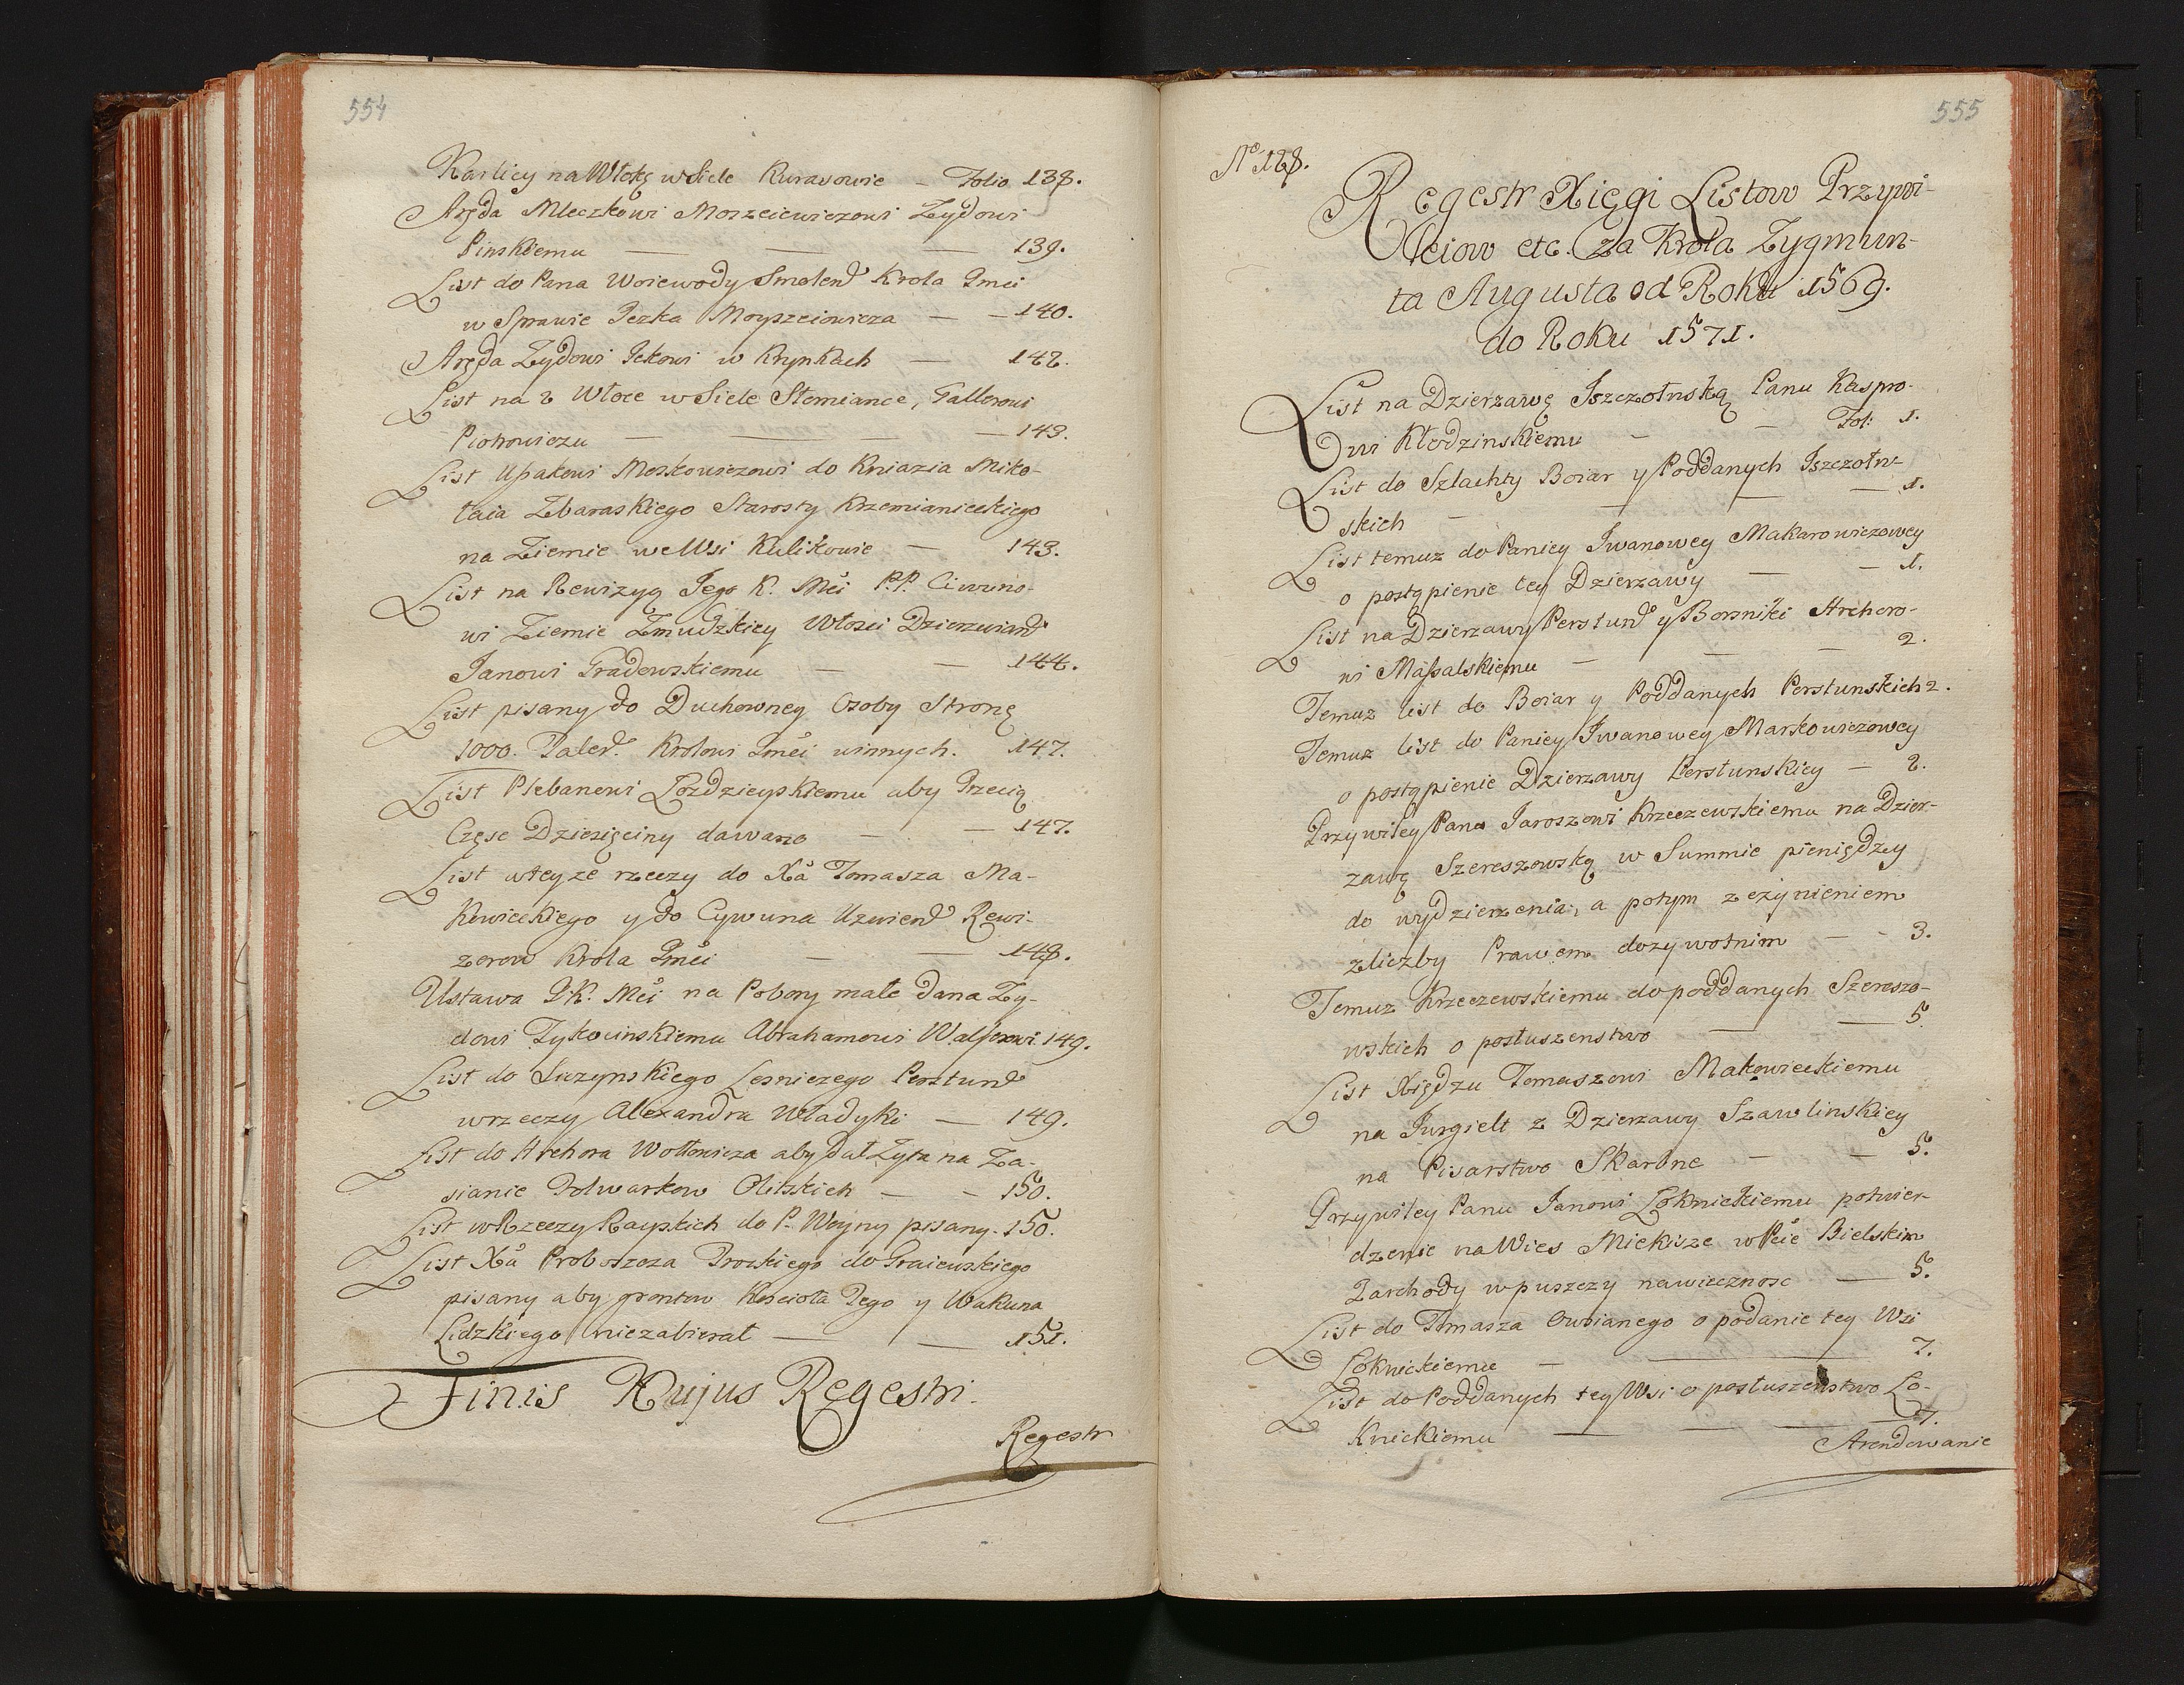 554
Karlicy na Włokę w Siele Kurasowie – Folio 138.
Aręda Mleczkowi Moszeiewiczowi Zydowi
Pinskiemu — — — 139.
List do Pana Woiewody Smolen̄ Krola Jmci
w Sprawie Jczka Moyszeiowicza — – 140.
Aręda Zydowi Ickowi w Krynkach — 142.
List na 2 Włoce w Siele Slomiance, Fallerowi
Piotrowiczu — — — — 143.
List Upakowi Moskowiczowi do Kniazia Miko-
łaia Zbaraskiego Starosty Krzemianieckiego
na Ziemie we Wsi Kulikowie — 143.
List na Rewizyą Jego K. Mci P.P. Ciwuno-
wi Ziemie Zmudzkiey Włosci Dzierzwian̄
Janowi Gradowskiemu — — 144.
List pisany do Duchowney Osoby Stronę
1000. Taler̄ Krolowi Jmci winnych. 147.
List Plebanowi Łozdzieyskiemu aby Trzecią
Częsc Dziesięciny dawano — — 147.
List w teyze rzeczy do Xa Tomasza Ma-
kowieckiego y do Cywuna Uzwien̄ Rewi-
zorow Krola Jmci — — 148.
Ustawa J.K. Mci na Pobory małe dana Zy-
dowi Tykocinskiemu Abrahamowi Walserowi 149.
List do Łuzynskiego Lesniczego Persztun̄
w rzeczy Alexandra Władyki — 149.
List do Hrehora Wołłowicza aby dał Zyta na Za-
sianie Folwarkow Olitskich — – 150.
List w Rzeczy Rayskich do P. Woyny pisany. 150.
List Xa Proboszcza Trockiego do Graiewskiego
pisany aby grontow Kosciola Jego y Wakuna
Lidzkiego niezabierał — — 151.
Finis Hujus Regestri.
Regestr
555
No 128.
Regestr Xięgi Listow Przywi-
leiow etc. za Krola Zygmun-
ta Augusta od Roku 1569.
do Roku 1571.
List na Dzierzawę Iszczołnską Panu Kaspro-
wi Kłodzinskiemu – – Fol: 1.
List do Szlachty Boiar y Poddanych Iszczołn-
skich — — — — 1.
List temuz do Paniey Iwanowey Makarowiczowey
o postąpienie tey Dzierzawy — – 1.
List na Dzierzawy Perstun̄ y Bersniki Hrehoro-
wi Massalskiemu — — — 2.
Temuz list do Boiar y Poddanych Perstunskich 2.
Temuz list do Paniey Iwanowey Markowiczowey
o postąpienie Dzierzawy Perstunskiey – 2.
Przywiley Pana Jaroszowi Krzeczewskiemu na Dzier-
zawę Szereszowską w Summie pieniędzy
do wydzierzenia, a potym z czynieniem
zliczby Prawem dozywotnim — – 3.
Temuz Krzeczewskiemu do poddanych Szereszo-
wskich o posłuszenstwo — — 5.
List Xiędzu Tomaszowi Makowieckiemu
na Jurgielt z Dzierzawy Szawlinskiey
na Pisarstwo Skarbne — — 5.
Przywiley Panu Janowi Łoknickiemu potwier-
dzenie na Wies Miekisze w Pcie Bielskim
Zarchody w puszczy nawiecznosc — 5.
List do Tomasza Owsianego o podanie tey Wsi
Łoknickiemu — — 7.
List do Poddanych tey Wsi o posłuszenstwo Ło-
knickiemu — — — 7.
Arendowanie